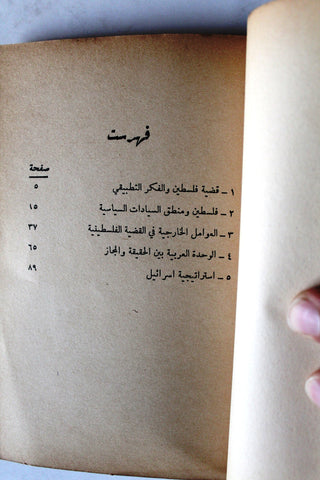 فهرست
صفحة
١ - قضية فلسطين والفكر التطبيقي ٥
٢ - فلسطين ومنطق السيادات السياسية ١٥
٣ - العوامل الخارجية في القضية الفلسطينية ٣٧
٤ - الوحدة العربية بين الحقيقة والمجاز ٦٥
٥ - استراتيجية اسرائيل ٨٩